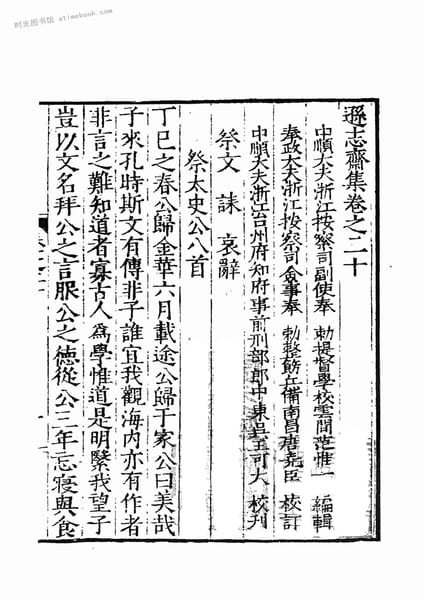 时光图书馆 atimebook.com
遜志齋集卷之二十
中順大夫浙江按察司副使奉 勑提督學校雲間范惟一 編輯
奉政大夫浙江按察司僉事奉 勑整飭兵備南昌唐堯臣 校訂
中順大夫浙江台州府知府事前刑部郎中東吳王可大 校刊
祭文 誄 哀辭
祭太史公八首
丁巳之春公歸金華六月載途公歸于家公曰美哉
子來孔時斯文有傳非子誰宜我觀海内亦有作者
非言之難知道者寡古人為學惟道是明繄我望子
豈以文名拜公之言服公之德從公三年忘寝與食